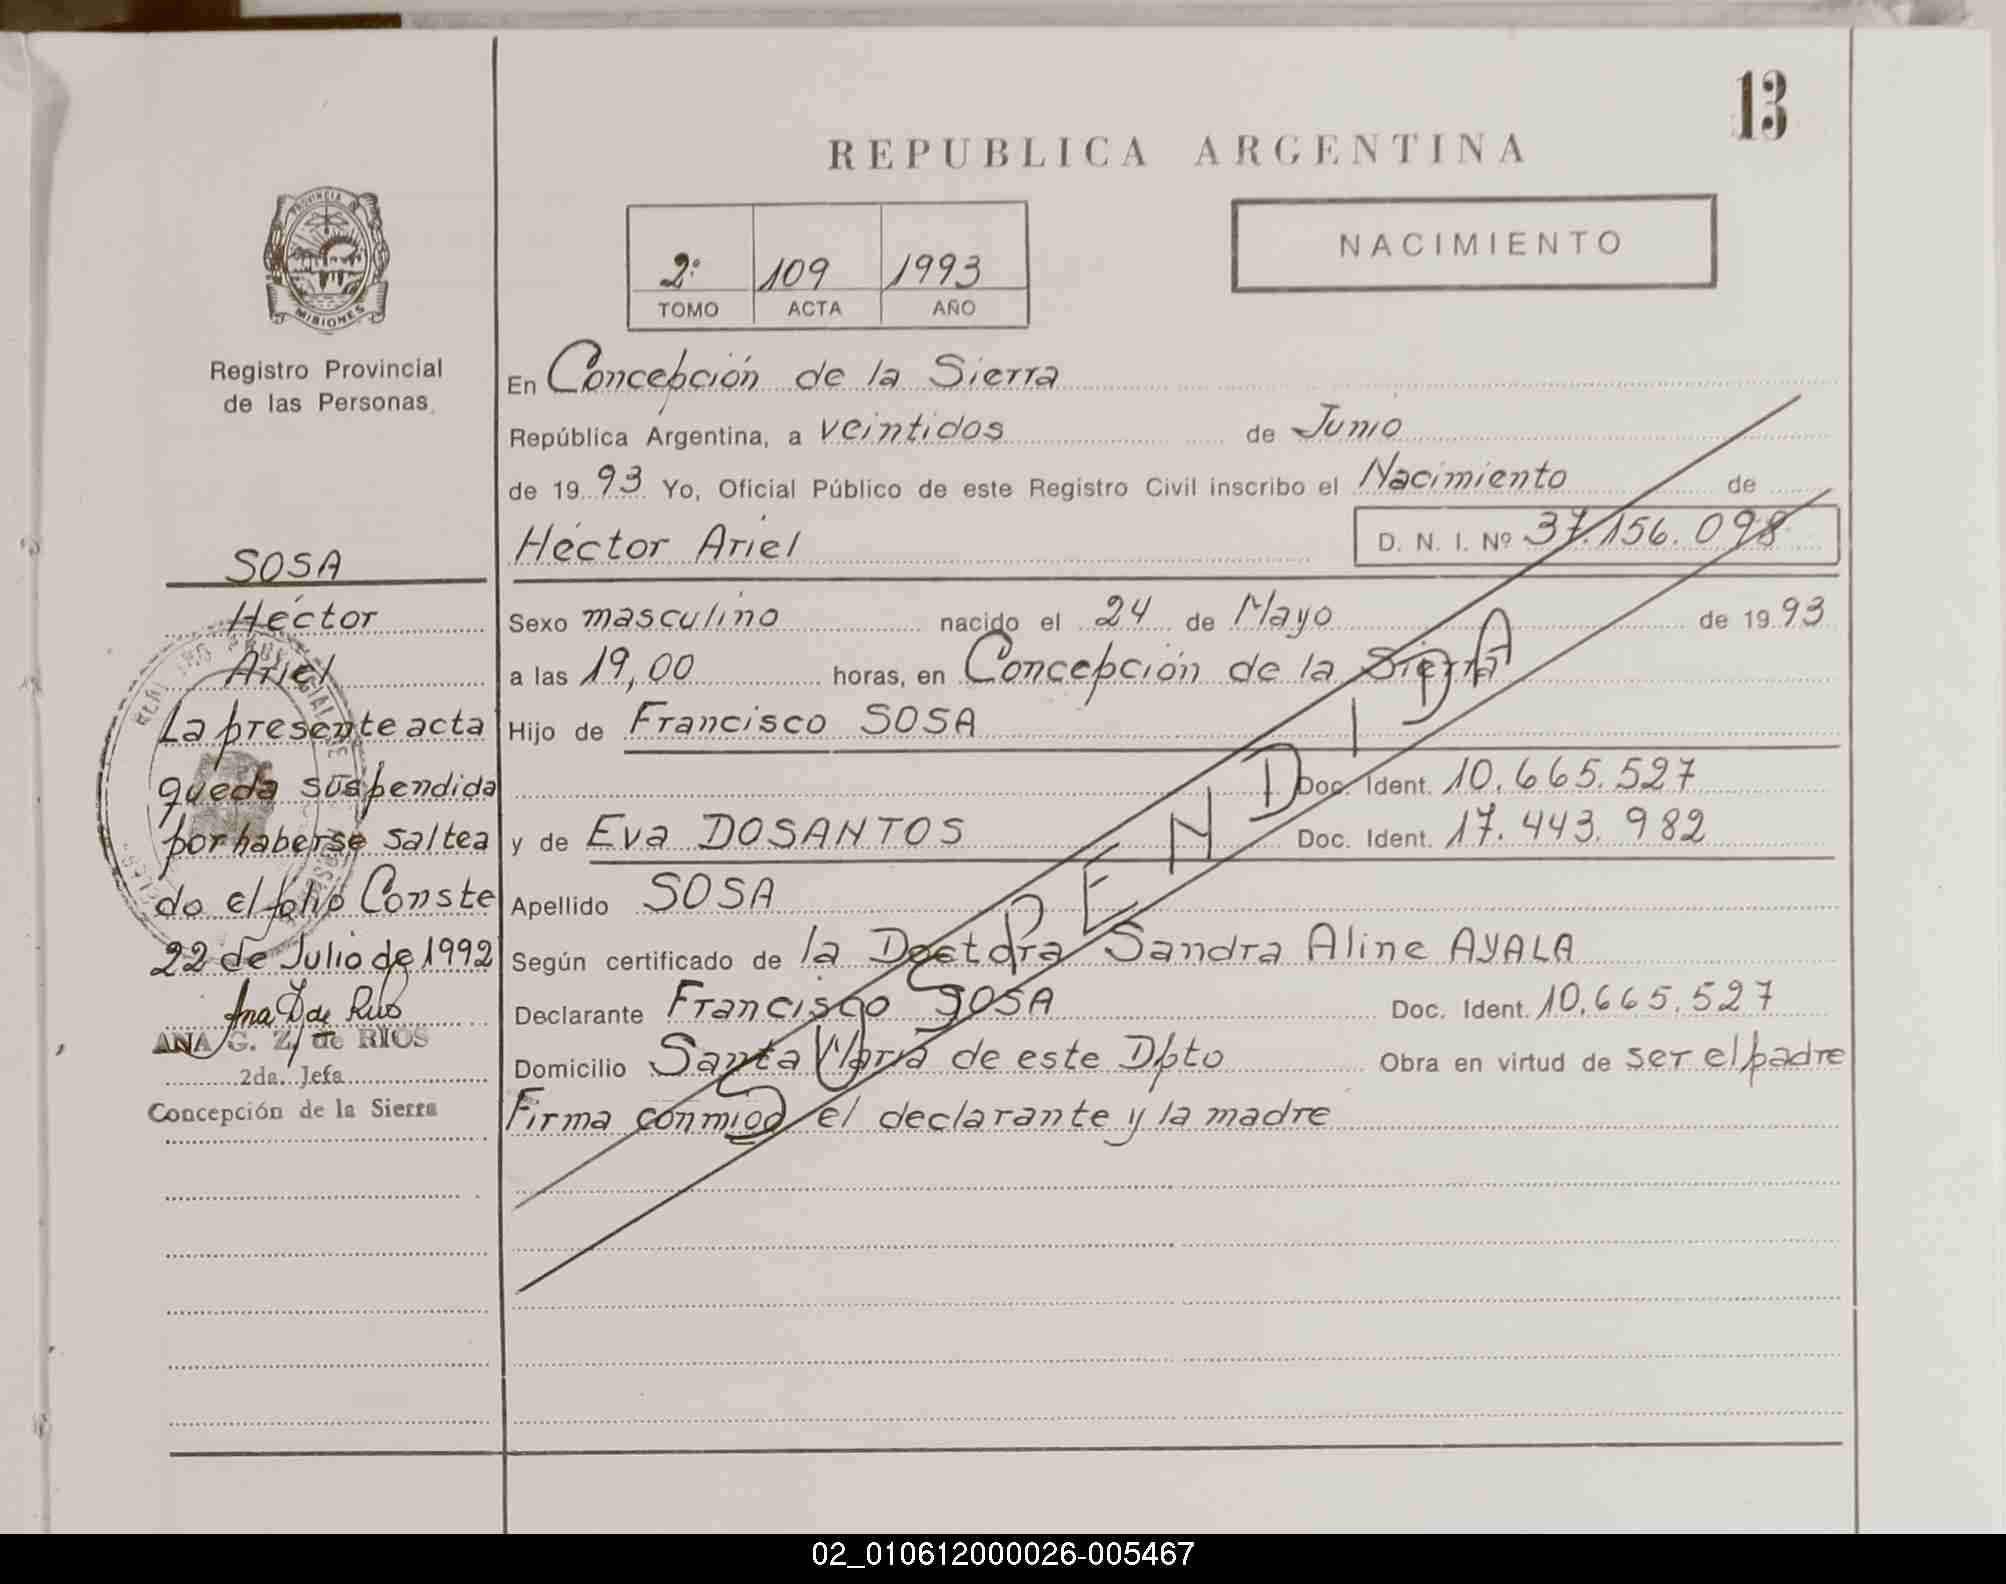 13
REPUBLICA ARGENTINA
NACIMIENTO
2º 109 1993
TOMO ACTA AÑO
PROVINCIA DE
MISIONES
Registro Provincial
de las Personas
En Concepción de la Sierra
República Argentina, a veintidos de Junio
de 1993 Yo, Oficial Público de este Registro Civil inscribo el Nacimiento de
Héctor Ariel D. N. I. Nº 37.156.098
Sexo masculino nacido el 24 de Mayo de 1993
a las 19,00 horas, en Concepción de la Sierra
Hijo de Francisco SOSA
Doc. Ident. 10.665.527
y de Eva DOSANTOS Doc. Ident. 17.443.982
Apellido SOSA
Según certificado de la Doctora Sandra Aline AYALA
Declarante Francisco SOSA Doc. Ident. 10.665.527
Domicilio Santa María de este Dpto Obra en virtud de ser el padre
Firma conmigo el declarante y la madre
SUSPENDIDA
SOSA
Héctor
Ariel
La presente acta
queda suspendida
por haberse saltea
do el folio Conste
22 de Julio de 1992
Ana Z de Rios
ANA G. Z. de RIOS
2da. Jefa
Concepción de la Sierra
02_010612000026-005467